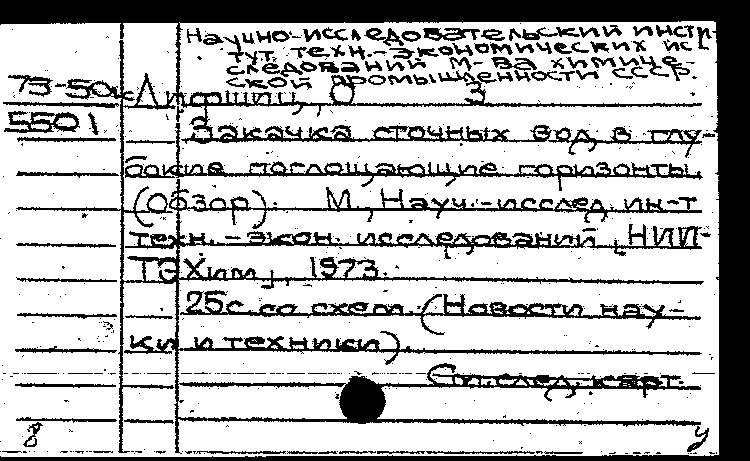 Научно-исследовательский инсти-
тут техн.-экономических ис-
следований М-ва химиче-
ской промышленности СССР.
73-50
5501
Лифшиц, О З
Закачка сточных вод в глу-
бокие поглощающие горизонты.
(Обзор). М., Науч.-исслед. ин-т
техн.-экон. исследований [НИИ-
ТЭХим], 1973.
25с. со схем. (Новости нау-
ки и техники).
См. след. карт.
8 у